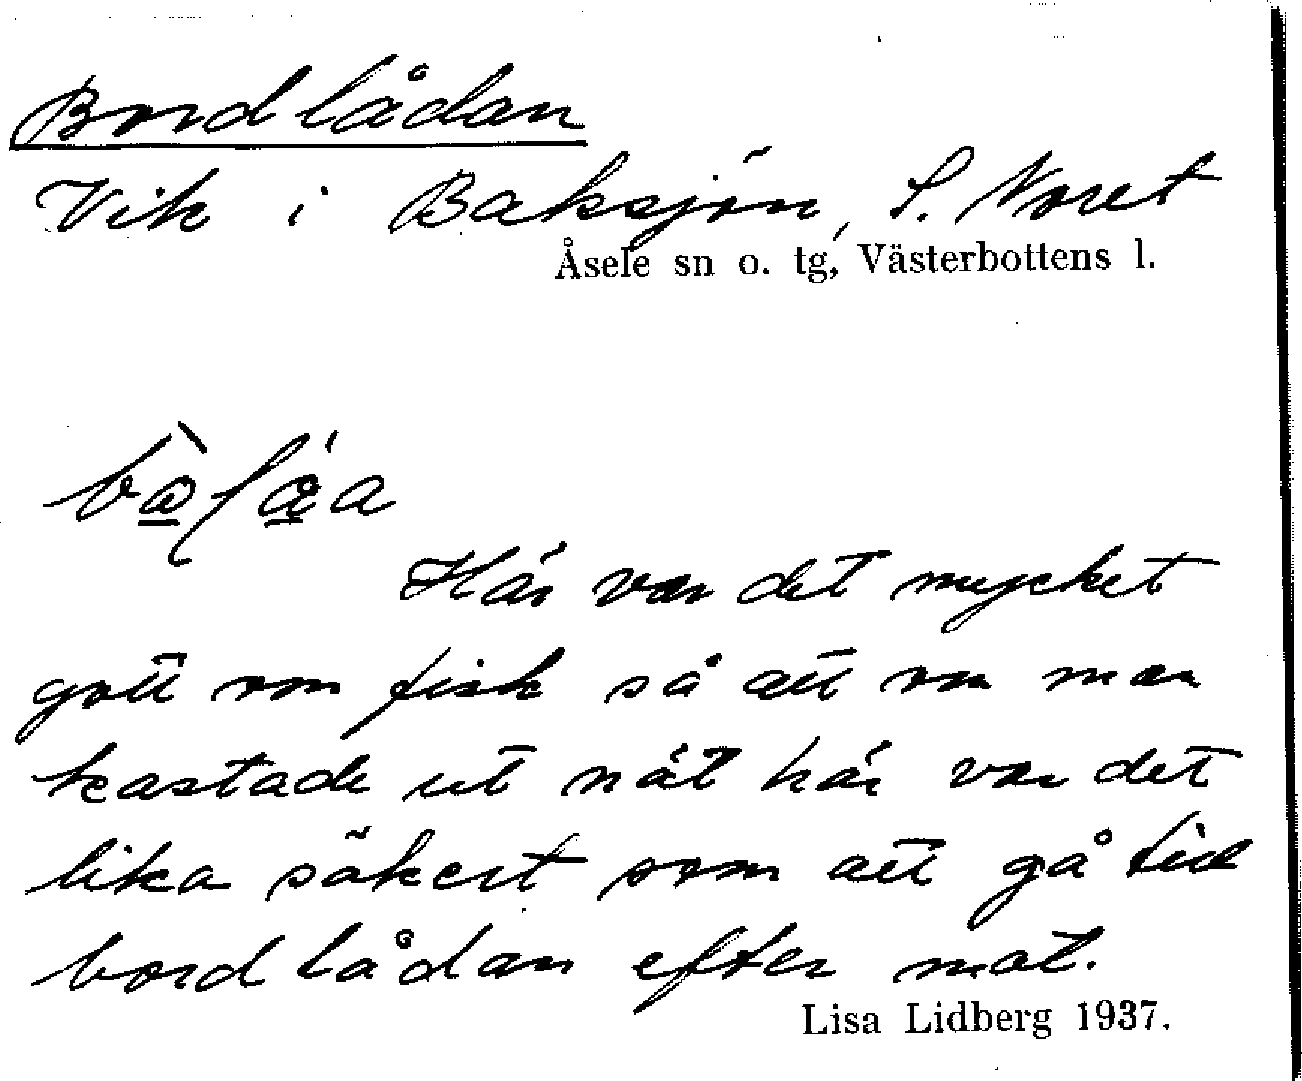 Bordlådan
Vik i Baksjön, S. Noret
Åsele sn o. tg, Västerbottens l.
Här var det mycket
gott om fisk så att om man
kastade ut nät här var det
lika säkert som att gå till
bordlådan efter mat.
Lisa Lidberg 1937.